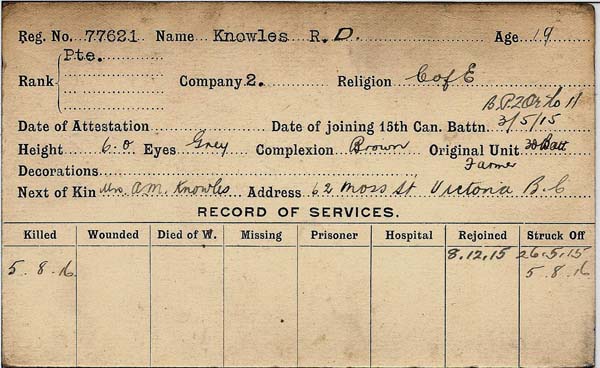 Reg. No. 77621 Name Knowles R. D. Age 19
Rank Pte. Company 2. Religion C of E
Date of Attestation Date of joining 15th Can. Battn. 3/5/15
Height 6.0 Eyes Grey Complexion Brown Original Unit 30 Batt
Decorations Farmer
Next of Kin Mrs. A M. Knowles Address 62 Moss St Victoria B.C
RECORD OF SERVICES.
Killed Wounded Died of W. Missing Prisoner Hospital Rejoined Struck Off
8.12.15 26.5.15
5.8.16 5.8.16